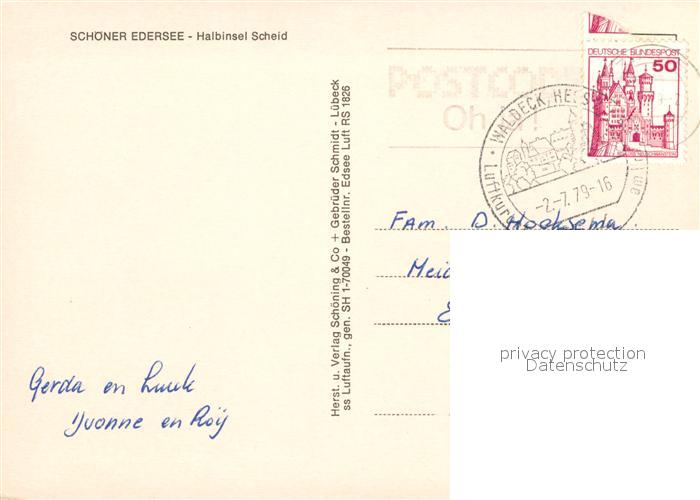 SCHÖNER EDERSEE - Halbinsel Scheid
DEUTSCHE BUNDESPOST
50
POSTCODE
WALDECK, HESS
Luftkur
-2.-7.79-16
Fam. D. Hoeksema.
Meid
Herst. u. Verlag Schöning & Co + Gebrüder Schmidt - Lübeck
ss Luftaufn., gen. SH 1-70049 - Bestellnr. Edsee Luft RS 1826
privacy protection
Datenschutz
Gerda en Luuk
Yvonne en Roÿ